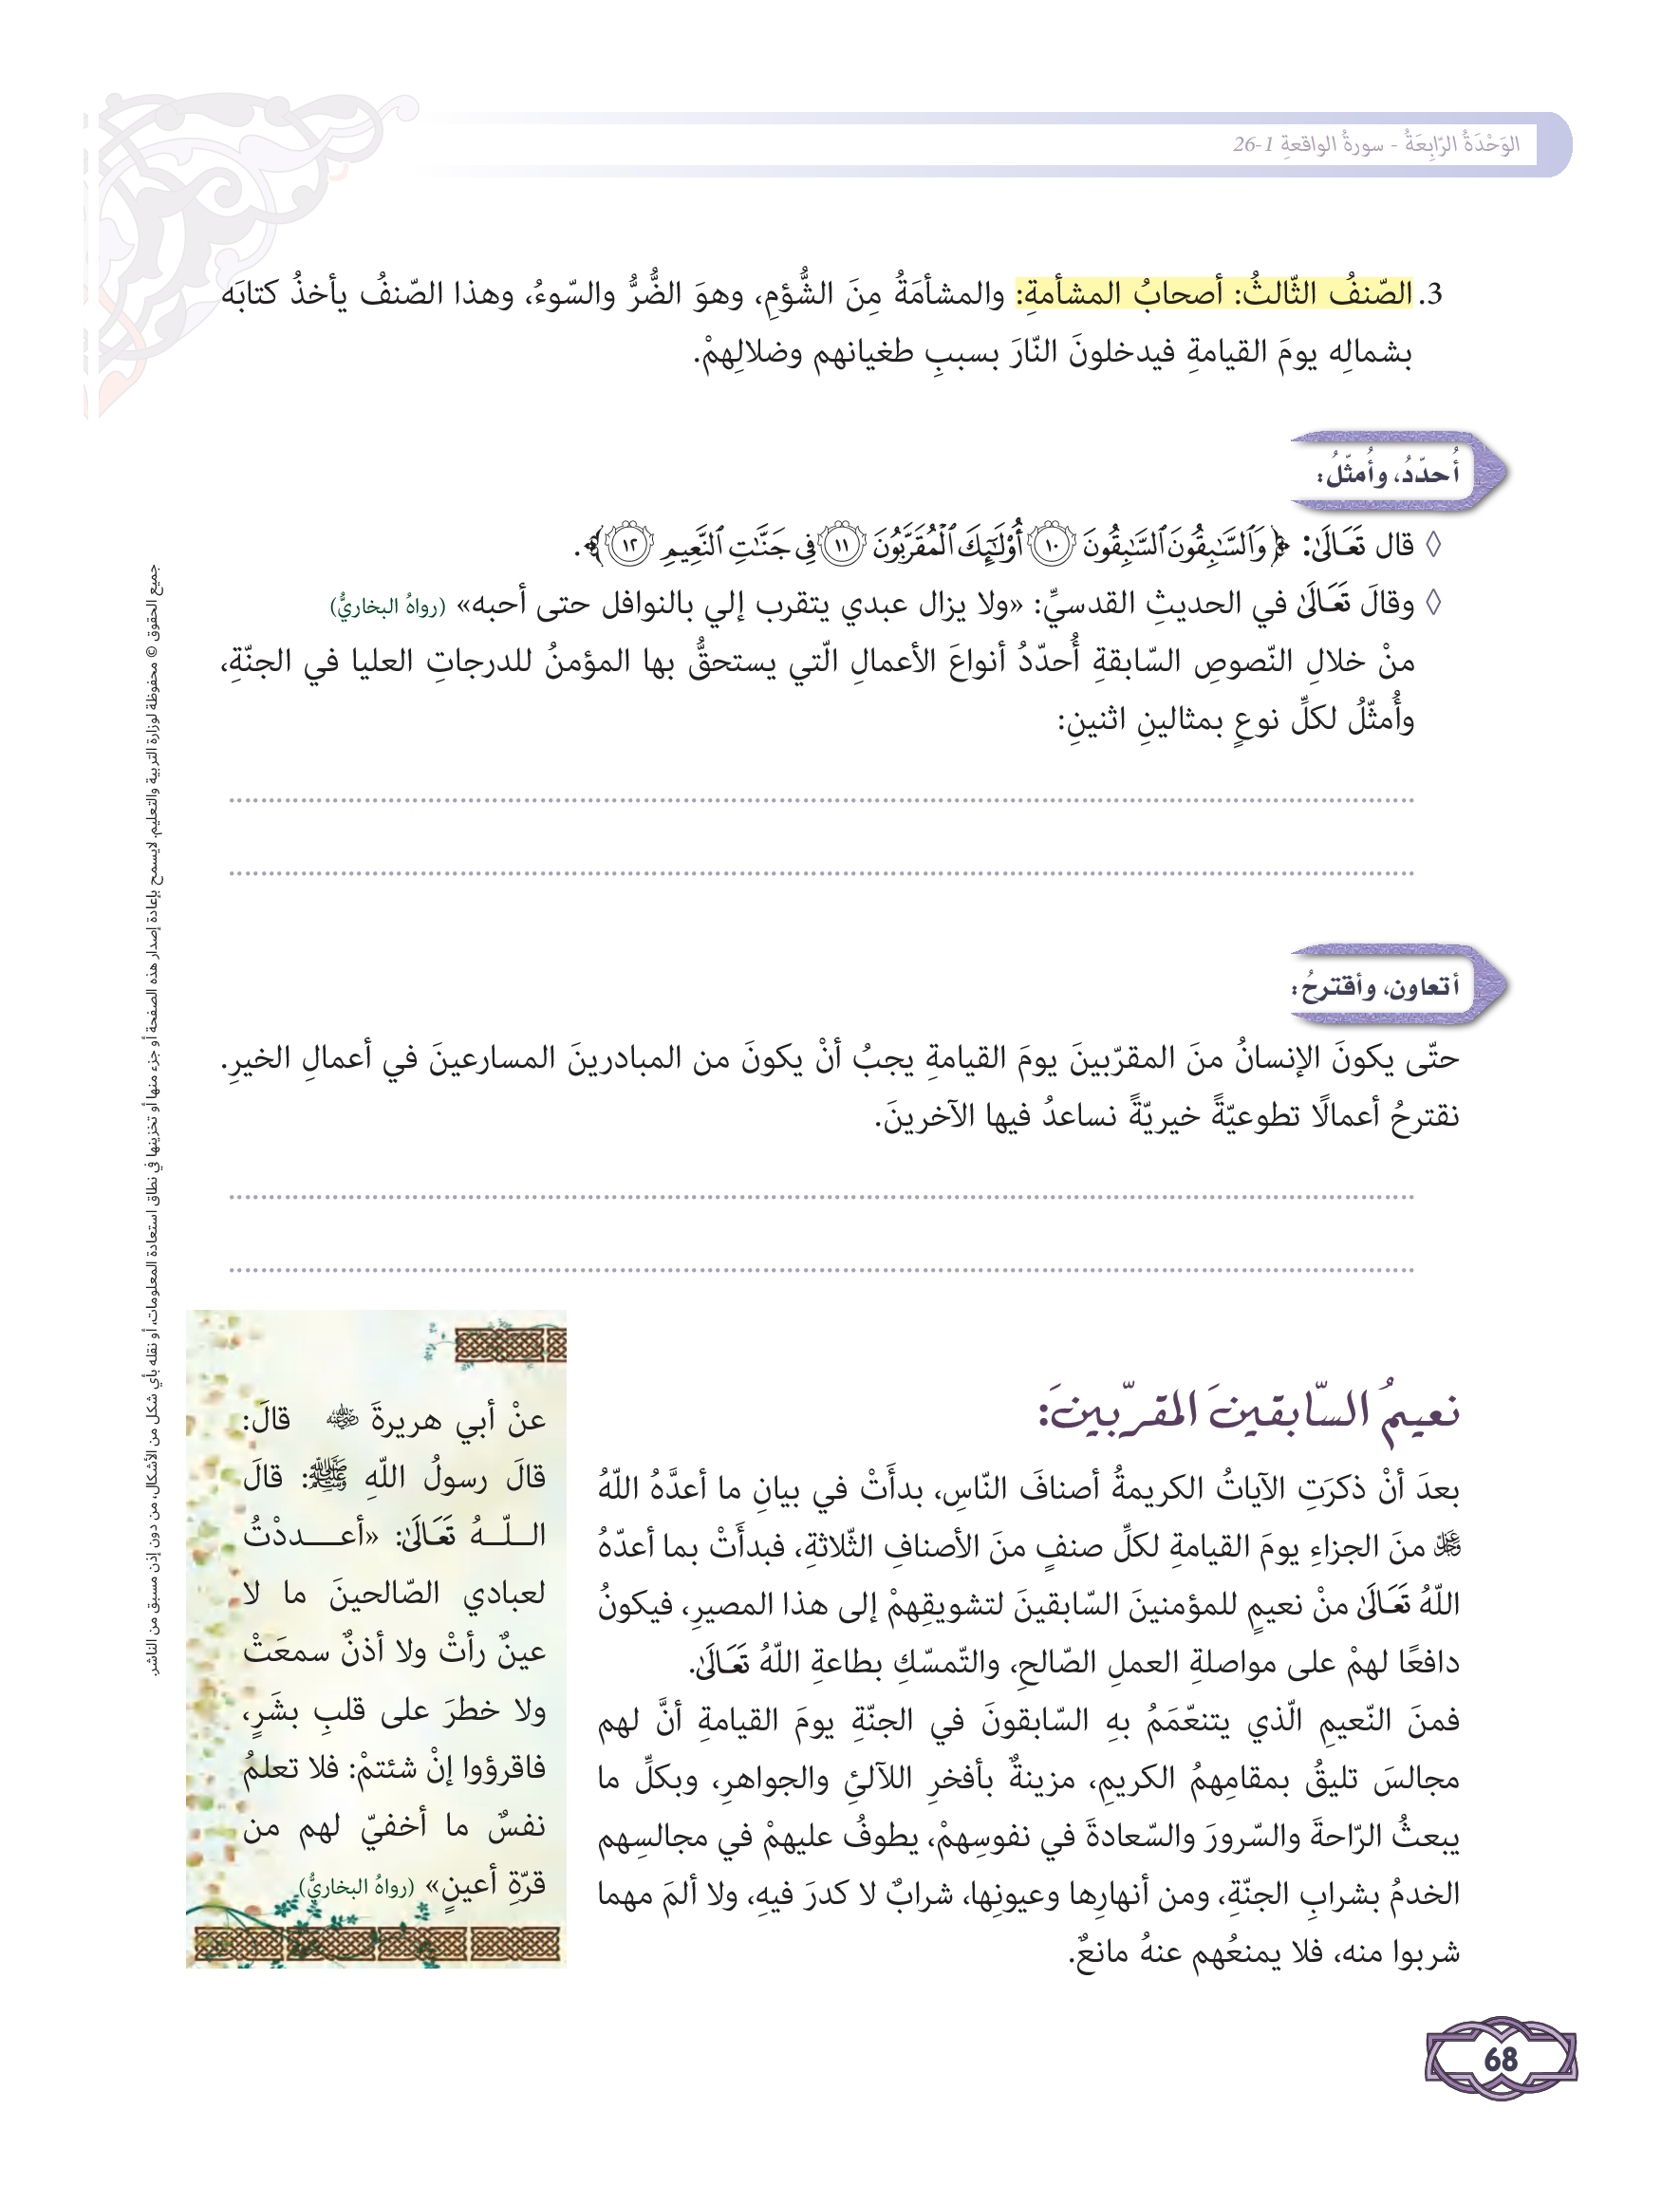 الوَحْدَةُ الرّابِعَةُ - سورةُ الواقعةِ 1-26
3. الصّنفُ الثّالثُ: أصحابُ المشأمةِ: والمشأمَةُ مِنَ الشُّؤمِ، وهوَ الضُّرُّ والسّوءُ، وهذا الصّنفُ يأخذُ كتابَه
بشمالِه يومَ القيامةِ فيدخلونَ النّارَ بسببِ طغيانهم وضلالِهمْ.
أُحدّدُ، وأُمثّلُ:
◊ قال تَعَالَىٰ: ﴿وَٱلسَّـٰبِقُونَ ٱلسَّـٰبِقُونَ ١٠ أُوْلَـٰٓئِكَ ٱلْمُقَرَّبُونَ ١١ فِى جَنَّـٰتِ ٱلنَّعِيمِ ١٢﴾.
◊ وقالَ تَعَالَىٰ في الحديثِ القدسيِّ: «ولا يزال عبدي يتقرب إلي بالنوافل حتى أحبه» (رواهُ البخاريُّ)
منْ خلالِ النّصوصِ السّابقةِ أُحدّدُ أنواعَ الأعمالِ الّتي يستحقُّ بها المؤمنُ للدرجاتِ العليا في الجنّةِ،
وأُمثّلُ لكلِّ نوعٍ بمثالينِ اثنينِ:
أتعاون، وأقترحُ:
حتّى يكونَ الإنسانُ منَ المقرّبينَ يومَ القيامةِ يجبُ أنْ يكونَ من المبادرينَ المسارعينَ في أعمالِ الخيرِ.
نقترحُ أعمالًا تطوعيّةً خيريّةً نساعدُ فيها الآخرينَ.
نعيمُ السّابقينَ المقرّبينَ:
بعدَ أنْ ذكرَتِ الآياتُ الكريمةُ أصنافَ النّاسِ، بدأَتْ في بيانِ ما أعدَّهُ اللّهُ
عَزَّوَجَلَّ منَ الجزاءِ يومَ القيامةِ لكلِّ صنفٍ منَ الأصنافِ الثّلاثةِ، فبدأَتْ بما أعدّهُ
اللّهُ تَعَالَىٰ منْ نعيمٍ للمؤمنينَ السّابقينَ لتشويقِهمْ إلى هذا المصيرِ، فيكونُ
دافعًا لهمْ على مواصلةِ العملِ الصّالحِ، والتّمسّكِ بطاعةِ اللّهُ تَعَالَىٰ.
فمنَ النّعيمِ الّذي يتنعّمَمُ بهِ السّابقونَ في الجنّةِ يومَ القيامةِ أنَّ لهم
مجالسَ تليقُ بمقامِهمُ الكريمِ، مزينةٌ بأفخرِ اللآلئِ والجواهرِ، وبكلِّ ما
يبعثُ الرّاحةَ والسّرورَ والسّعادةَ في نفوسِهمْ، يطوفُ عليهمْ في مجالسِهم
الخدمُ بشرابِ الجنّةِ، ومن أنهارِها وعيونِها، شرابٌ لا كدرَ فيهِ، ولا ألمَ مهما
شربوا منه، فلا يمنعُهم عنهُ مانعٌ.
عنْ أبي هريرةَ رضي الله عنه قالَ:
قالَ رسولُ اللّهِ ﷺ: قالَ
اللّهُ تَعَالَىٰ: «أعددْتُ
لعبادي الصّالحينَ ما لا
عينٌ رأتْ ولا أذنٌ سمعَتْ
ولا خطرَ على قلبِ بشَرٍ،
فاقرؤوا إنْ شئتمْ: فلا تعلمُ
نفسٌ ما أخفيّ لهم من
قرّةِ أعينٍ» (رواهُ البخاريُّ)
جميع الحقوق © محفوظة لوزارة التربية والتعليم. لايسمح بإعادة إصدار هذه الصفحة أو جزء منها أو تخزينها في نطاق استعادة المعلومات، أو نقله بأي شكل من الأشكال، من دون إذن مسبق من الناشر.
68